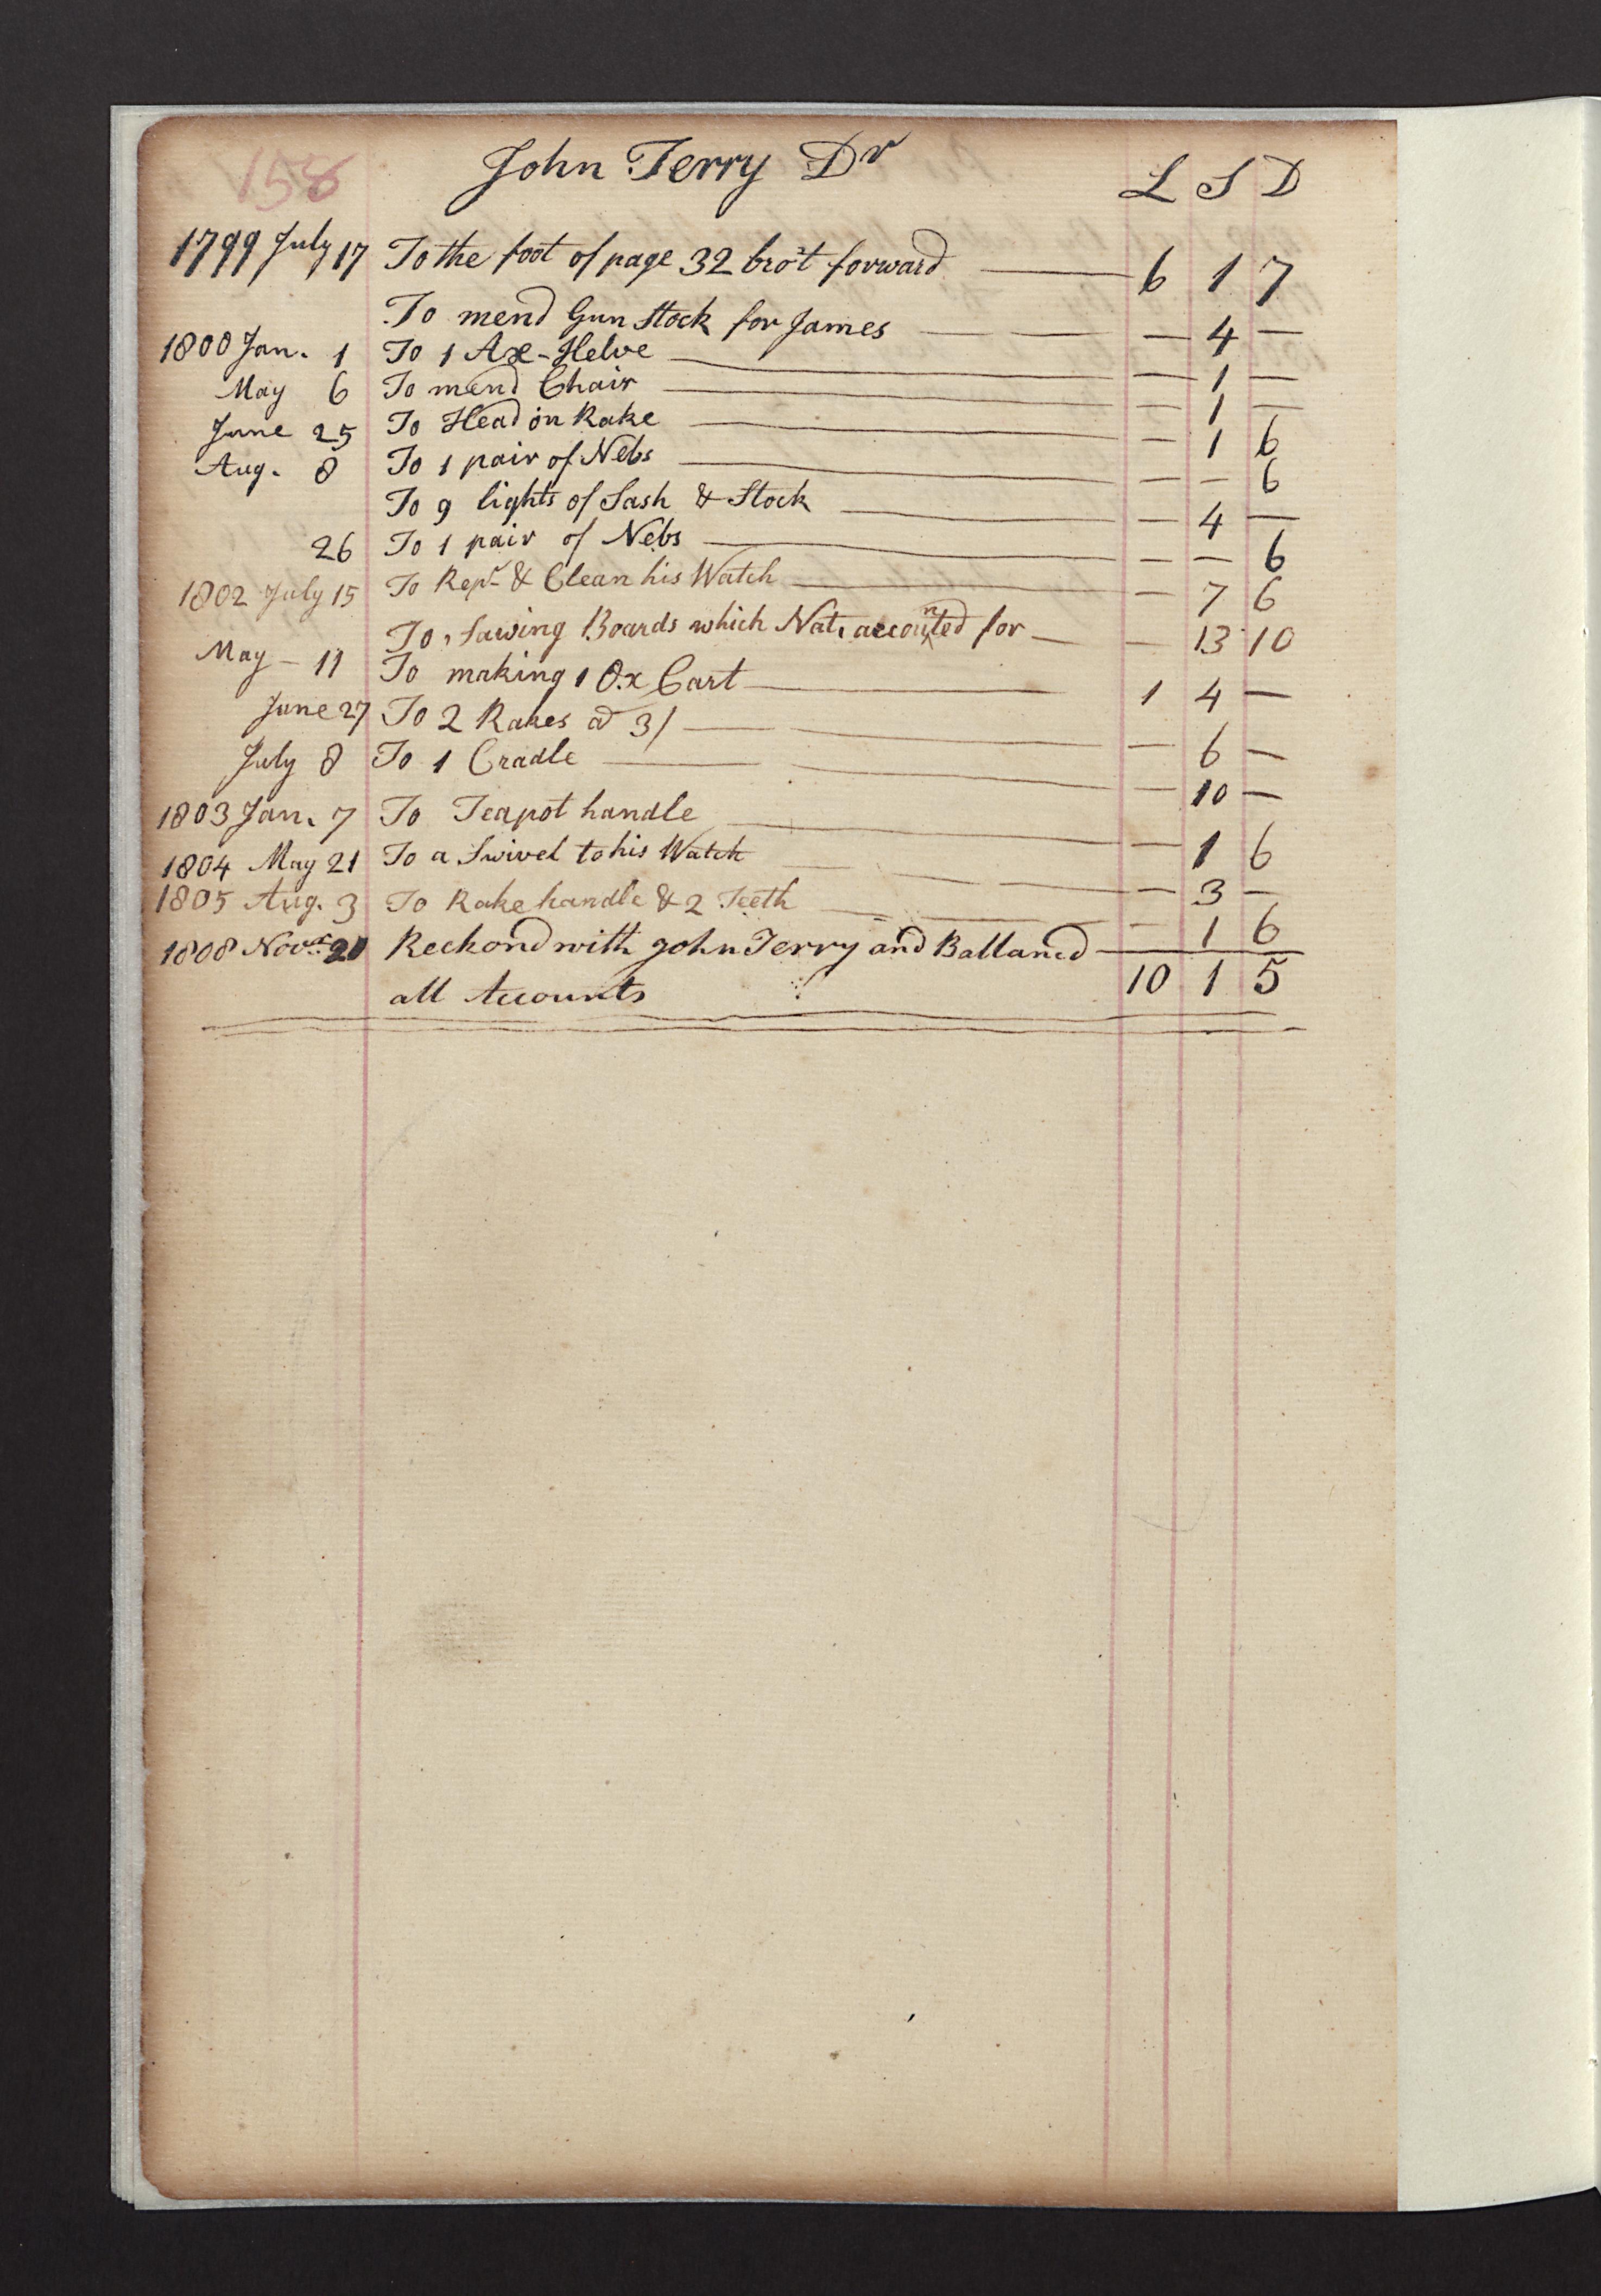 158
John Terry Dr
L S D
1799 July 17 To the foot of page 32 bro't forward — 6 1 7
To mend Gun Stock for James — — 4 —
1800 Jan. 1 To 1 Axe-Helve — — 1 —
May 6 To mend Chair — — 1 —
June 25 To Head on Rake — — 1 6
Aug. 8 To 1 pair of Nebs — — — 6
To 9 lights of Sash & Stock — — 4 —
26 To 1 pair of Nebs — — — 6
1802 July 15 To Repr & Clean his Watch — — 7 6
To Sawing Boards which Nat. accounted for — — 13 10
May - 11 To making 1 Ox Cart — 1 4 —
June 27 To 2 Rakes @ 3/ — — 6 —
July 8 To 1 Cradle — — 10 —
1803 Jan. 7 To Teapot handle — — 1 6
1804 May 21 To a Swivel to his Watch — — 3 —
1805 Aug. 3 To Rake handle & 2 Teeth — — 1 6
1808 Novr 20 Reckond with John Terry and Ballancd
all Accounts 10 1 5